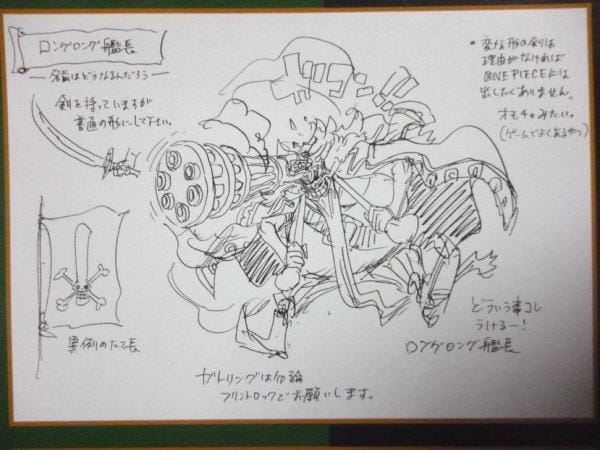 ロングロング艦長
― 名前はどうなるんだろう ―
剣を持っていますが
普通の形にして下さい。
• 変な形の剣は
理由がなければ
ONE PIECEには
出したくありません。
オモチャみたい。
(ゲームでよくあるやつ)
ドドドン!!
異例のたて長
どういう事コレ
うけるー!
ロングロング艦長
ガトリングは勿論
フリントロックでお願いします。